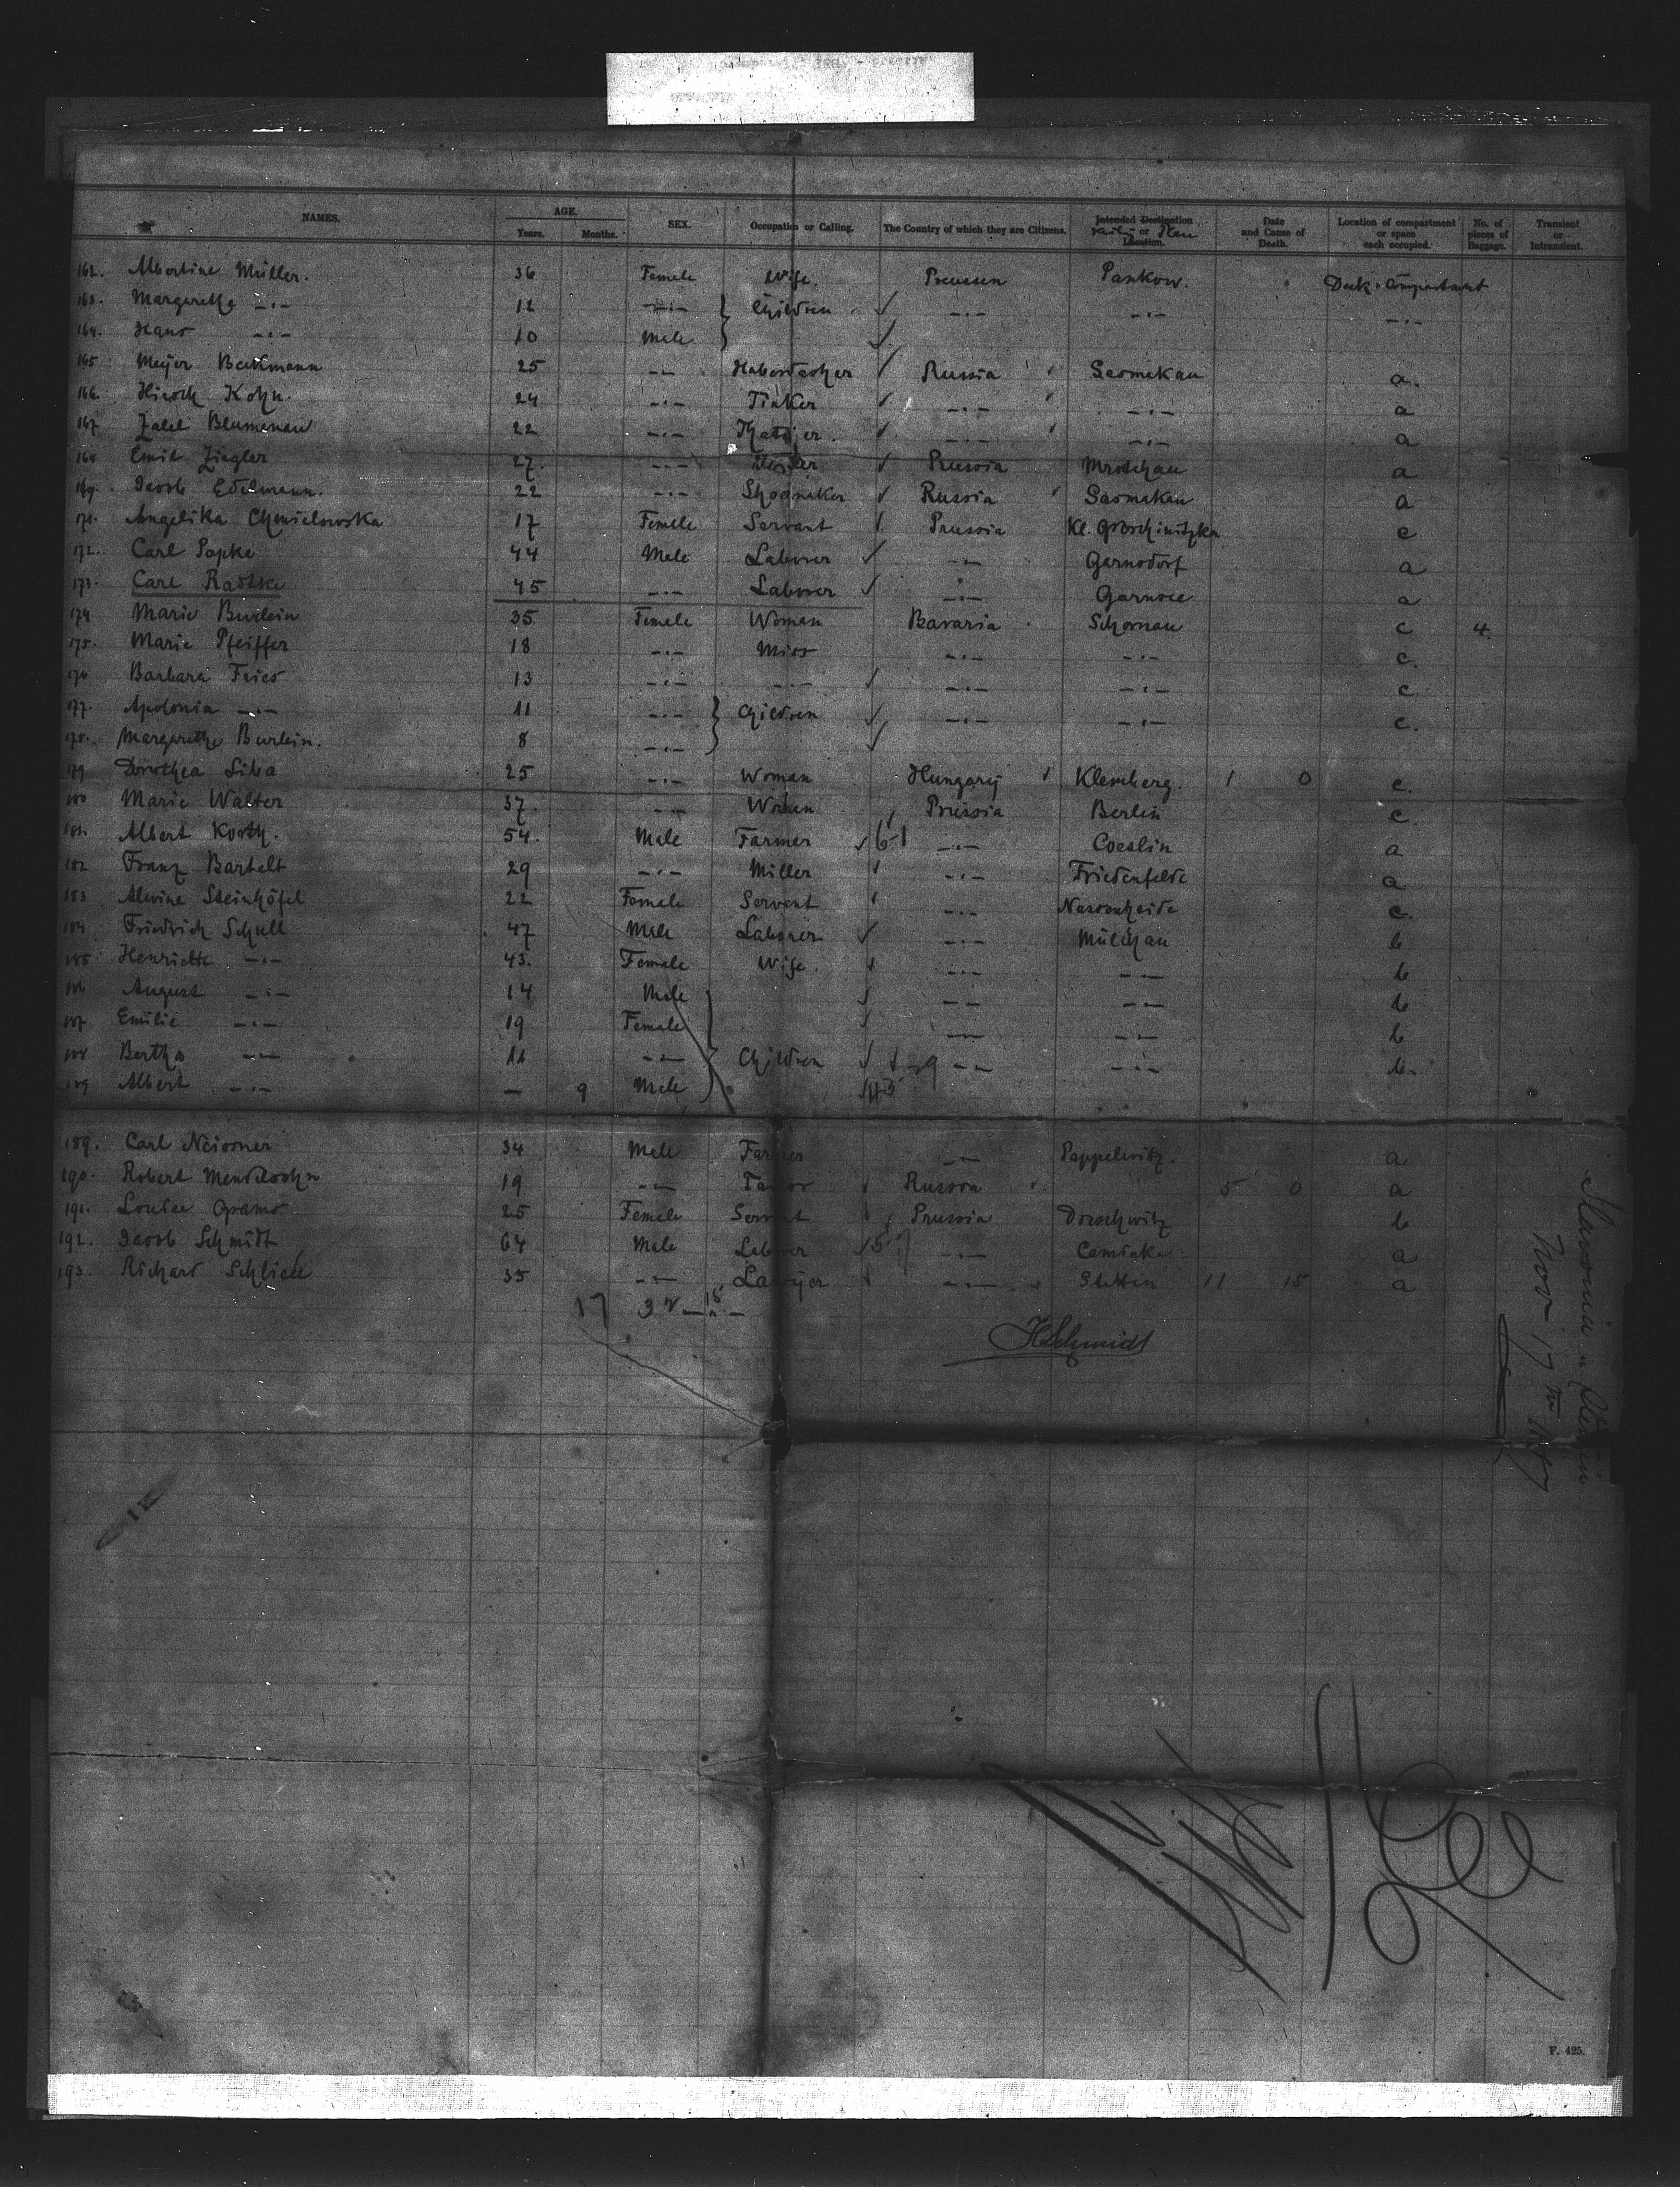 NAMES. AGE. SEX. Occupation or Calling. The Country of which they are Citizens. Intended Destination or Location. Date and Cause of Death. Location of compartment or space each occupied. No. of pieces of Baggage. Transient or Intransient.
Years. Months.
162. Albertine Müller. 36 Female Wife. Preussen Pankow. Deck-Compartment
163. Margarethe -"- 12 -"- Children -"- -"- -"-
164. Hans -"- 10 Male
165 Meyer Beckmann 25 -"- Haberdasher Russia Sasmakau a.
166. Hirsch Kohn. 24 -"- Tinker -"- -"- a
167. Zalel Blumenau 22 -"- -"- -"- a
168 Emil Ziegler 27. -"- Prussia Mrotschau a
169. Jacob Edelmann. 22 -"- Shoemaker Russia Sasmakau a
171. Angelika Chmielowska 17 Female Servant Prussia Kl. c
172. Carl Papke 44 Male Laborer -"- Garnsdorf a
173. Carl Radtke 45 -"- Laborer -"- Garnsee a
174 Marie Burlein 35 Female Woman Bavaria Schornau c 4.
175. Marie Pfeiffer 18 -"- Miss -"- -"- c.
176 Barbara Fries 13 -"- -"- -"- -"- c
177. Apolonia -"- 11 -"- Children -"- -"- c.
178. Margarethe Burlein. 8 -"-
179 Dorothea 25 -"- Woman Hungary 1 0 c.
180 Marie Walter 37. -"- Woman Prussia Berlin c.
181. Albert Korth. 54. Male Farmer 6-1 -"- Coeslin a
182 Franz Bartelt 29 -"- Miller -"- Friedenfelde a
183 Alwine Steinhöfel 22 Female Servant -"- Nassenheide c.
184 Friedrich Schull 47 Male Laborer -"- b
185 Henriette -"- 43. Female Wife. -"- -"- b
186 August -"- 14 Male -"- -"- b
187 Emilie -"- 19 Female -"- -"- b
188 Bertha -"- 11 -"- Children -"- -"- b
189 Albert -"- — 9 Male
189. Carl Neissner 34 Male Farmer -"- Pappelwitz. a
190. Robert Mendelsohn 19 -"- Russia 5 0 a
191. Louise 25 Female Servant Prussia Dorschwitz b
192. Jacob Schmidt 64 Male Laborer -"- Caminke a
193. Richard Schlicht 35 -"- Lawyer -"- Stettin 11 15 a
17
HSchmidt
Slavonia
Nov 17th
F. 425.